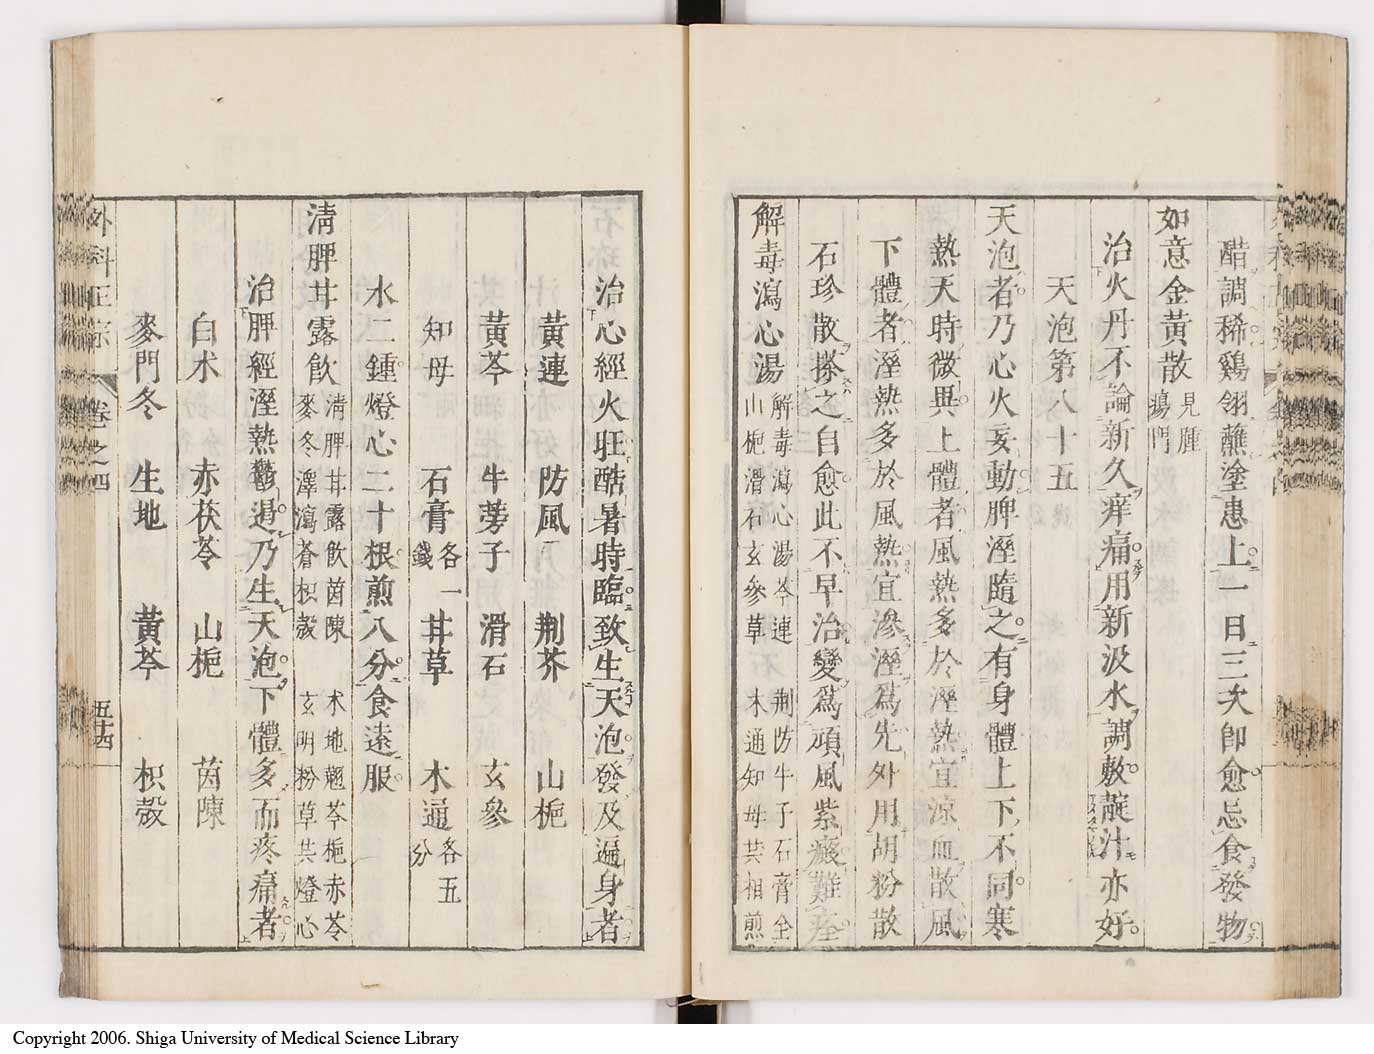 醋調稀鷄翎蘸塗患上一日三次即愈忌食發物
如意金黃散 見腫
瘍門
治火丹不論新久痒痛用新汲水調敷靛汁亦好
天泡第八十五
天泡者乃心火妄動脾溼隨之有身體上下不同寒
熱天時微與上體者風熱多於溼熱宜涼血散風
下體者溼熱多於風熱宜滲溼爲先外用胡粉散
石珍散搽之自愈此不早治變爲頑風紫癜難痊
解毒瀉心湯 解毒瀉心湯芩連 荆防牛子石膏全
山梔滑石玄參草 木通知母共相煎
治心經火旺酷暑時臨致生天泡發及遍身者
黃連 防風 荆芥 山梔
黃芩 牛蒡子 滑石 玄參
知母 石膏各一錢 甘草 木通各五分
水二鍾燈心二十根煎八分食遠服
淸脾甘露飲 淸脾甘露飲茵陳 术地翹芩梔赤苓
麥冬澤瀉蒼枳殼 玄明粉草共燈心
治脾經溼熱鬱遏乃生天泡下體多而疼痛者
白术 赤茯苓 山梔 茵陳
麥門冬 生地 黃芩 枳殼
外科正宗 卷之四 五十四
Copyright 2006. Shiga University of Medical Science Library